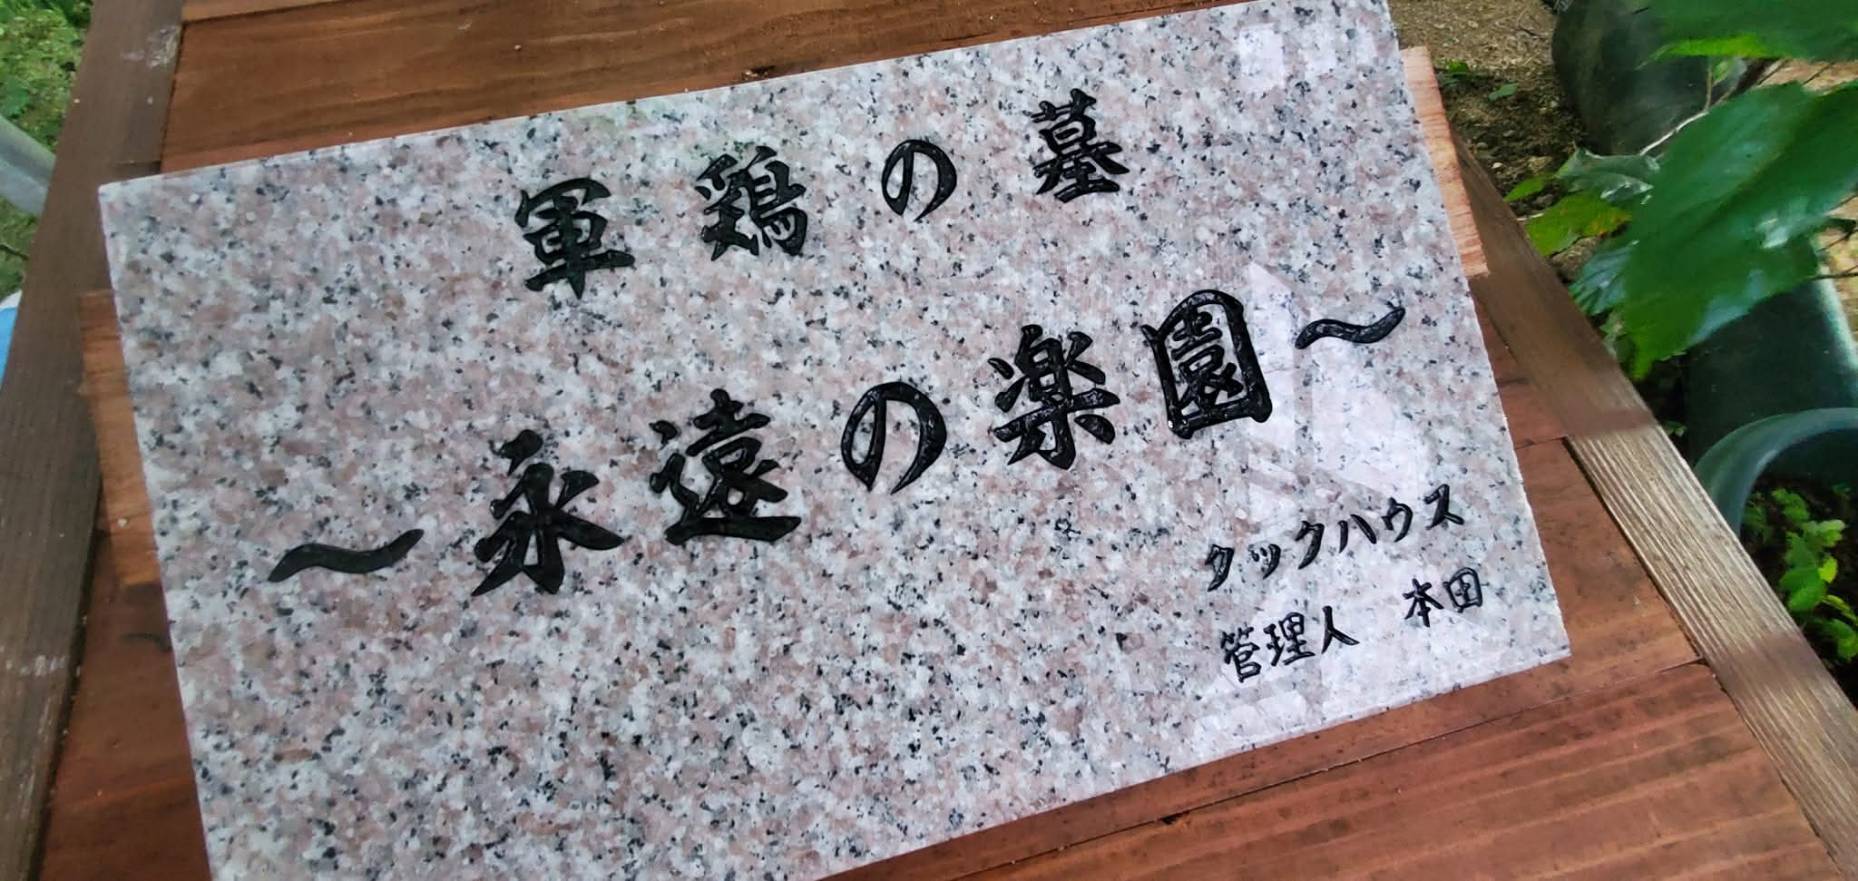 軍鶏の墓
～永遠の楽園～
クックハウス
管理人 本田